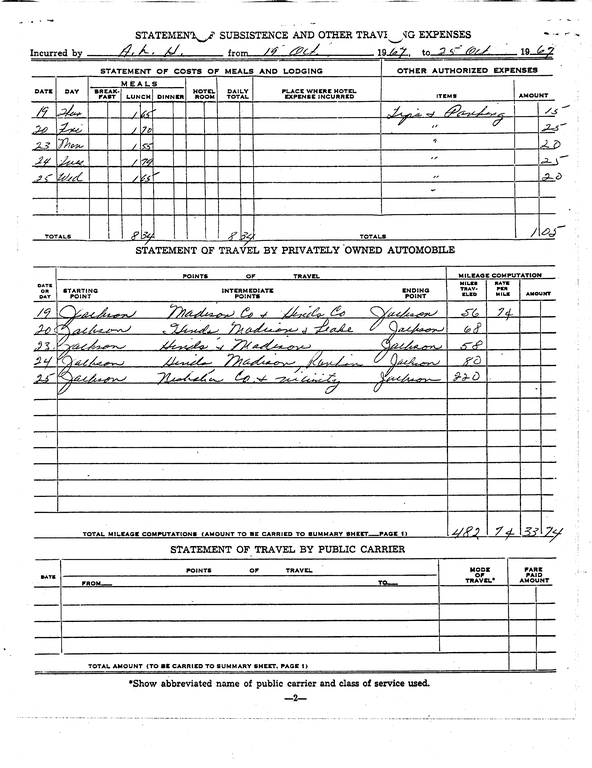 STATEMENT SUBSISTENCE AND OTHER TRAVELING EXPENSES
Incurred by A. L. H. from 19 Oct 1967, to 25 Oct 1967
STATEMENT OF COSTS OF MEALS AND LODGING OTHER AUTHORIZED EXPENSES
DATE DAY MEALS BREAK-FAST LUNCH DINNER HOTEL ROOM DAILY TOTAL PLACE WHERE HOTEL EXPENSE INCURRED ITEMS AMOUNT
19 Thur 1 65 Tips & Parking 15
20 Fri 1 70 " 25
23 Mon 1 55 " 20
24 Tues 1 79 " 25
25 Wed 1 65 " 20
"
TOTALS 8 34 8 34 TOTALS 1 05
STATEMENT OF TRAVEL BY PRIVATELY OWNED AUTOMOBILE
POINTS OF TRAVEL MILEAGE COMPUTATION
DATE OR DAY STARTING POINT INTERMEDIATE POINTS ENDING POINT MILES TRAV-ELED RATE PER MILE AMOUNT
19 Jackson Madison Co & Hinds Co Jackson 56 7¢
20 Jackson Hinds Madison & Leake Jackson 68
23 Jackson Hinds & Madison Jackson 58
24 Jackson Hinds Madison Rankin Jackson 80
25 Jackson Neshoba Co & vicinity Jackson 220
TOTAL MILEAGE COMPUTATIONS (AMOUNT TO BE CARRIED TO SUMMARY SHEET—PAGE 1) 482 7¢ 33 74
STATEMENT OF TRAVEL BY PUBLIC CARRIER
DATE POINTS OF TRAVEL MODE OF TRAVEL* FARE PAID AMOUNT
FROM— TO—
TOTAL AMOUNT (TO BE CARRIED TO SUMMARY SHEET, PAGE 1)
*Show abbreviated name of public carrier and class of service used.
—2—